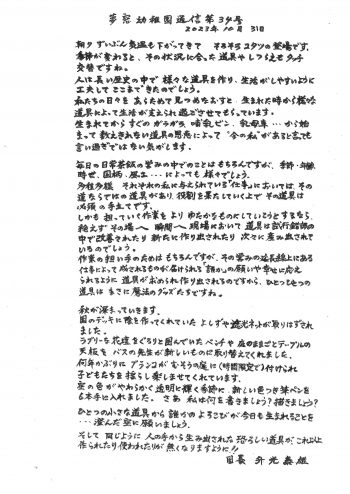 夢窓幼稚園通信 第39号
2023年10月31日
朝夕ずいぶん気温も下がってきて そろそろコタツの登場です。
季節が変わると、その状況に合った道具やしつらえもタッチ
交替ですね。
人は長い歴史の中で様々な道具を作り、生活がしやすいように
工夫してここまできたのでしょう。
私たちの日々をあらためて見つめなおすと 生まれた時から様々な
道具によって生活が支えられ過ごさせてもらっています。
生まれてからすぐのガラガラ 哺乳ビン、乳母車…から始
まって 数えきれない道具の恩恵によって "今の私"があると言っても
言い過ぎではない気がします。
毎日の日常茶飯の営みの中でのことはもちろんですが、季節・年齢
時世、国柄・風土…によっても 様々でしょう。
多種多様 それぞれの私に与えられている"仕事"においては、その
道ならではの道具があり、役割を果たしていく上で その道具は
必須の手立てです。
しかも 担っていく作業を よりゆたかなものにしていこうとするなら、
絶えず その場へ 瞬間へ 現場において 道具は試行錯誤の
中で改善されたり 新たに作り出されたり 次々に産み出されて
いるのでしょう。
作業の担い手のためはもちろんですが、その営みの延長線上にある
仕事によって成されるものが届けられる"誰か"の願いや幸せに応え
られるように 道具が求められ作り出されるのですから、ひとつひとつの
道具は まさに魔法のグッズたちですね。
秋が深まっていきます。
園のデッキに陰を作ってくれていた よしずや遮光ネットが取りはずされ
ました。
ラブリーな花壇をぐるりと囲んでいた ベンチや 庭のままごとテーブルの
天板を バスの先生が新しいものに取り替えてくれました。
何年かぶりに ブランコがむそうの尾に(時間限定で)付けられ
子どもたちを揺らし楽しませてくれています。
空の色がやわらかく透明に輝く季節に、新しい色つき筆ペンを
6本手に入れました。さあ 私は何を書きましょう?描きましょう?
ひとつの小さな道具から 誰かのよろこびが今日も生まれることを
…澄んだ空に願いましょう。
そして 同じように人の手から生み出された 恐ろしい道具が これ以上
作られたり使われたりが無くなりますように!!
園長 升光泰雄